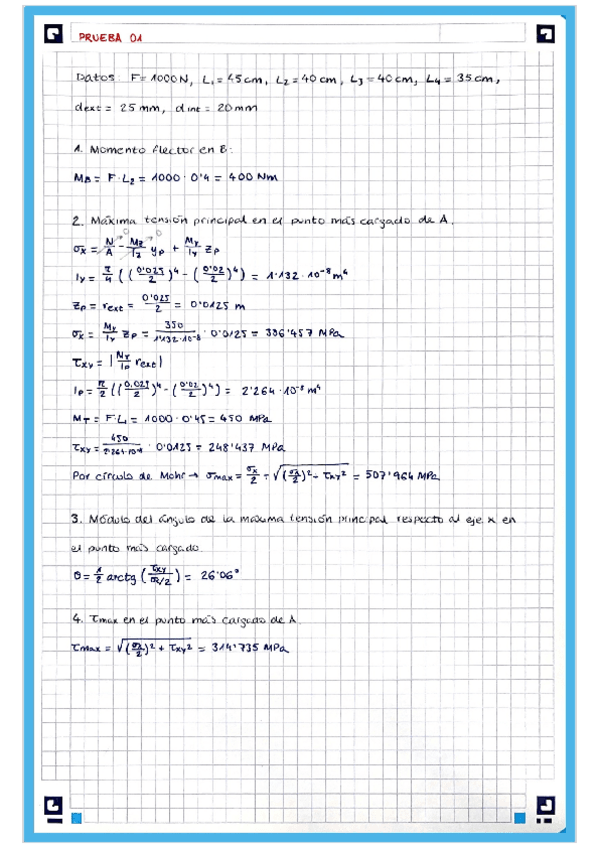 PRUEBA 01
Datos: F = 1000 N, L₁ = 45 cm, L₂ = 40 cm, L₃ = 40 cm, L₄ = 35 cm,
dext = 25 mm, dint = 20 mm
1. Momento flector en B:
MB = F·L₂ = 1000 · 0'4 = 400 Nm
2. Máxima tensión principal en el punto más cargado de A.
σx = N/A - Mz/Iz yp + My/Iy zp
Iy = π/4 ((0'025/2)⁴ - (0'02/2)⁴) = 1'132 · 10⁻⁸ m⁴
zp = rext = 0'025/2 = 0'0125 m
σx = My/Iy zp = 350/1'132·10⁻⁸ · 0'0125 = 386'457 MPa
τxy = |Mx/Ip rext|
Ip = π/2 ((0.025/2)⁴ - (0'02/2)⁴) = 2'264 · 10⁻⁸ m⁴
MT = F·L₁ = 1000 · 0'45 = 450 MPa
τxy = 450/2'264·10⁻⁸ · 0'0125 = 248'437 MPa
Por círculo de Mohr → σmax = σx/2 + √((σx/2)² + τxy²) = 507'964 MPa
3. Módulo del ángulo de la máxima tensión principal respecto al eje x en
el punto más cargado.
θ = 1/2 arctg (τxy/σx/2) = 26'06°
4. τmax en el punto más cargado de A.
τmax = √((σx/2)² + τxy²) = 314'735 MPa